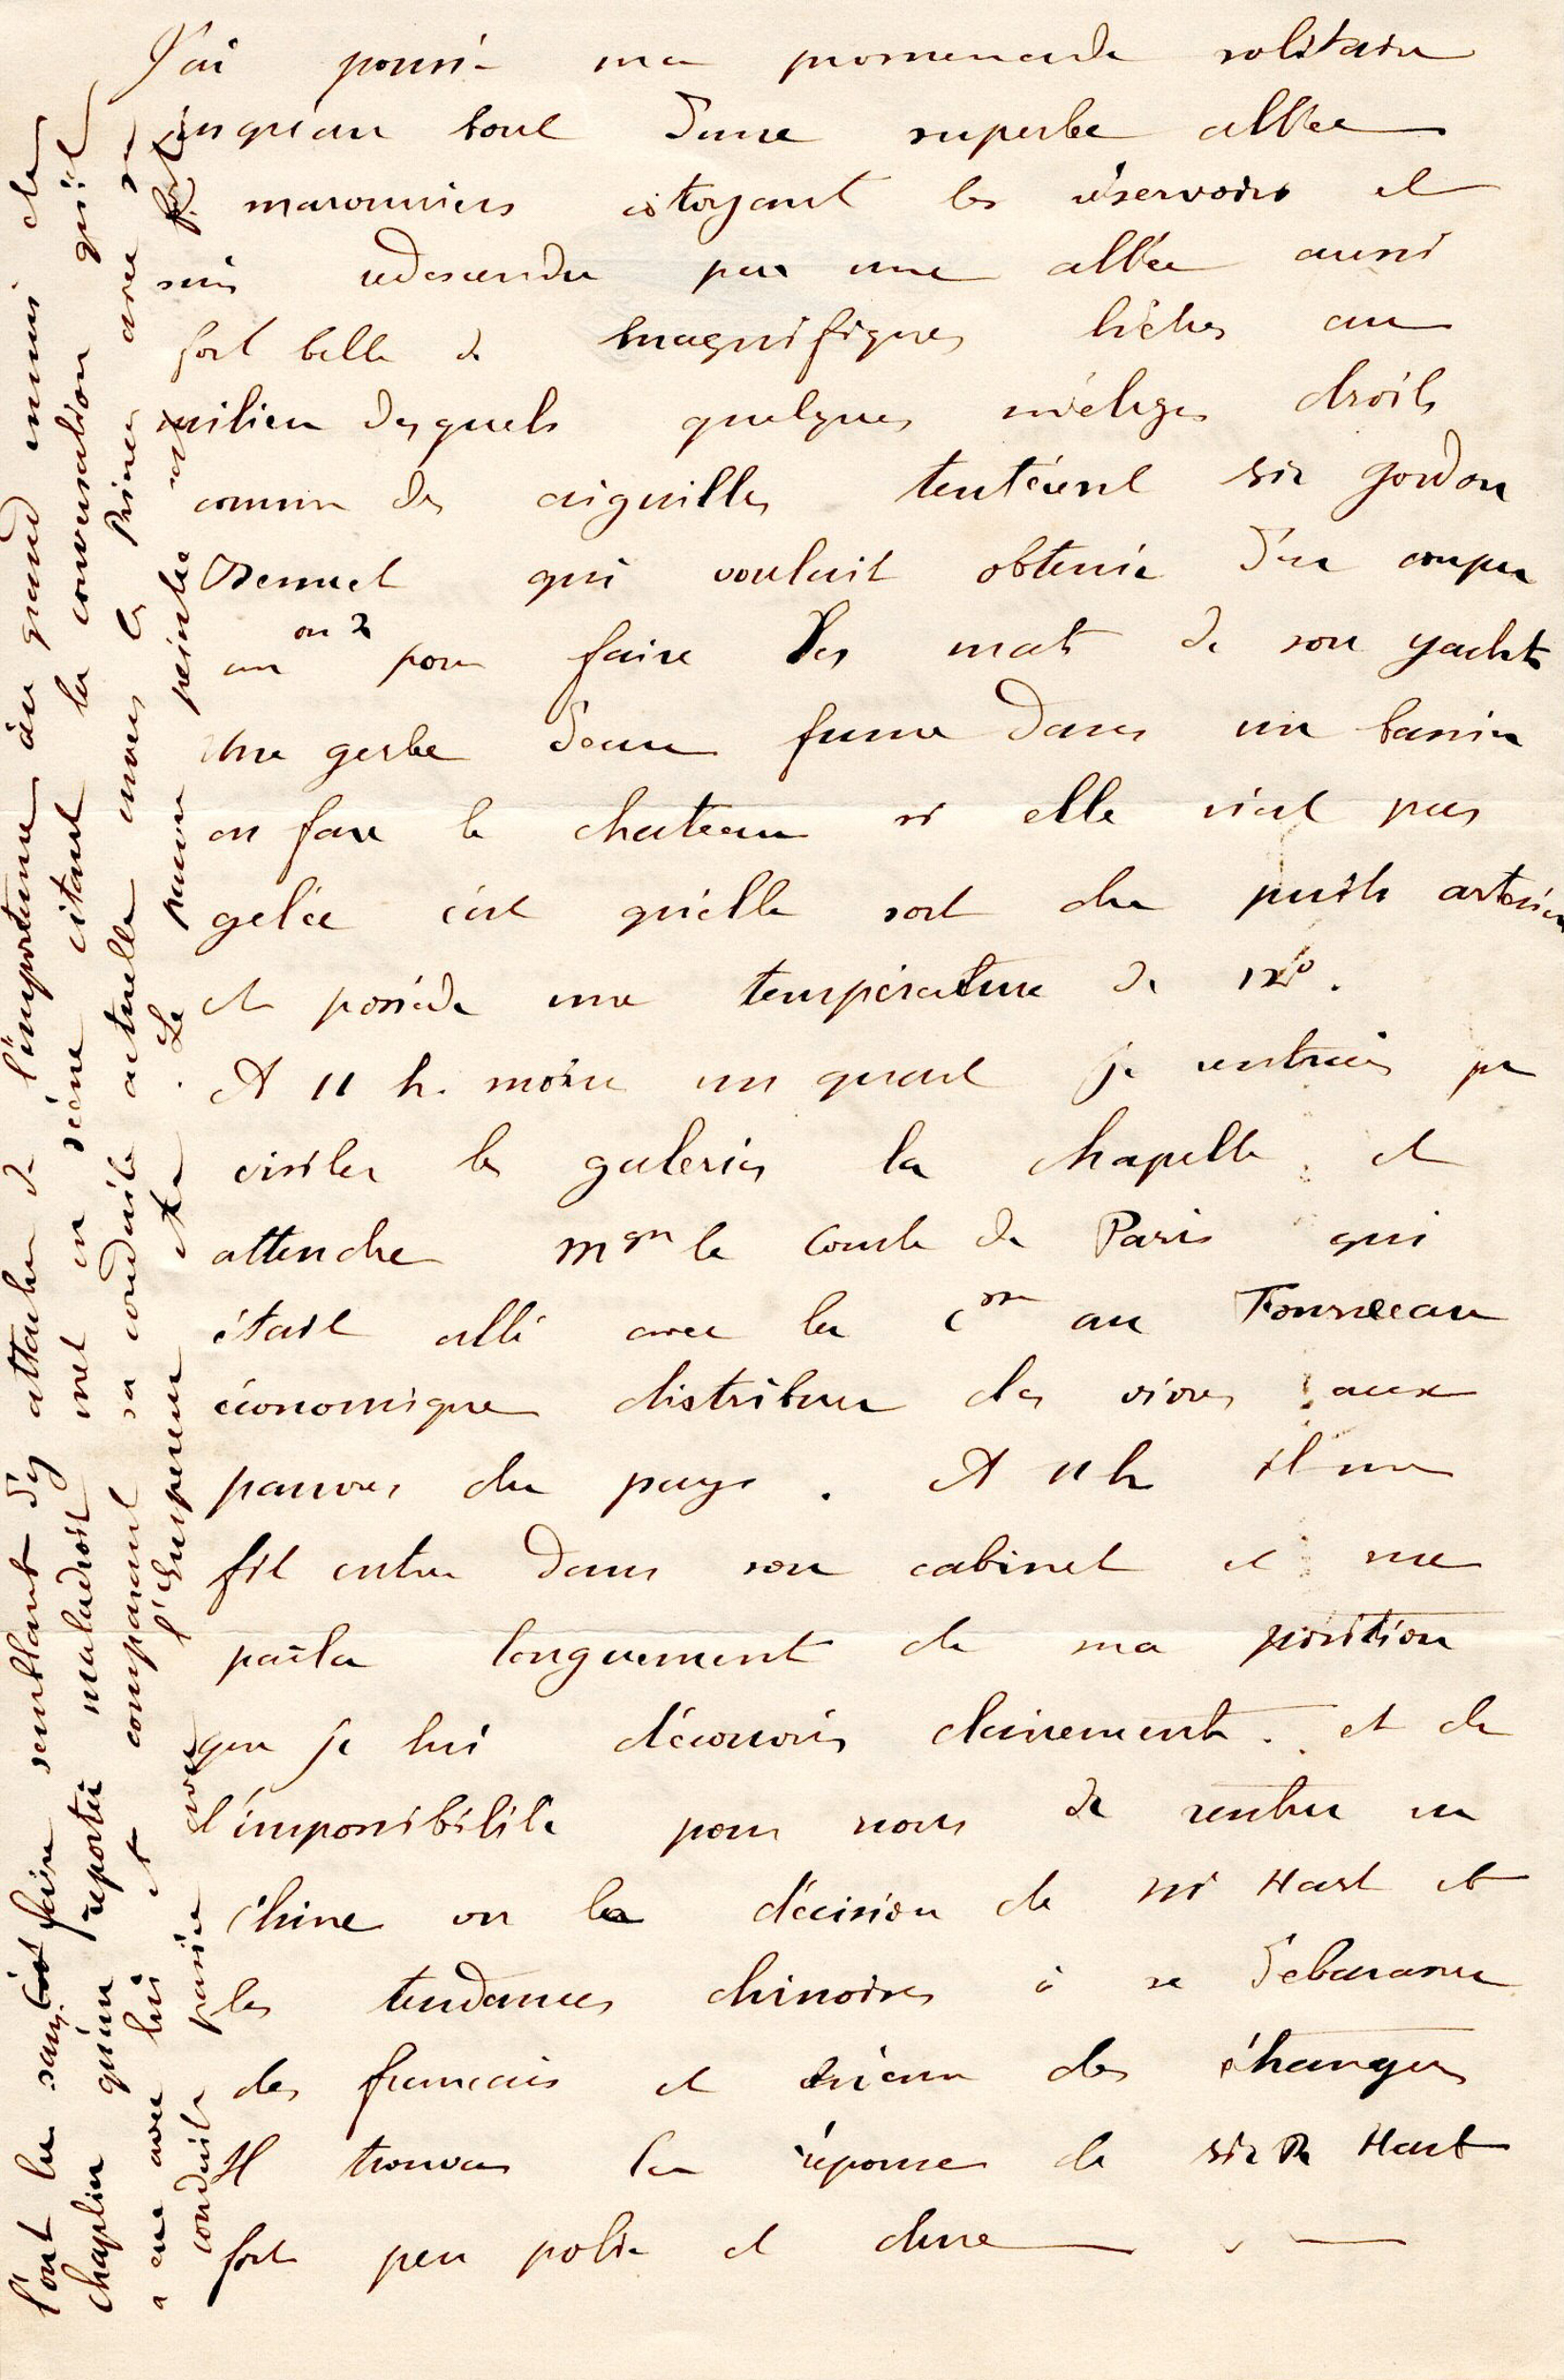 J'ai poussé ma promenade solitaire
jusqu'au bout d'une superbe allée
maronniers cotoyant les réservoirs et
suis redescendu par une allée aussi
fort belle de magnifiques hêtres au
milieu desquels quelques mélèzes droits
comme des aiguilles tentèrent Sir Gordon
Bennet qui voulait obtenir d'en couper
un ou 2 pour faire les mats de son yacht
Une gerbe d'eau fume dans un bassin
en face le chateau si elle n'est pas
gelée c'est qu'elle sort du puits artésien
et possède une température de 12°.
A 11 h. moins un quart je rentrais pr
visiter les galeries la chapelle et
attendre Mgr le Comte de Paris qui
était allé avec la Csse au Fourneau
économique distribuer des vivres aux
pauvres du pays. A 11 h il me
fit entrer dans son cabinet et me
parla longuement de ma position
que je lui découvris clairement. et de
l'impossibilité pour nous de rentrer en
Chine vu la décision de Mr Hart et
les tendances chinoises à se débarasser
des français et des étrangers
Il trouva la réponse de Sir R Hart
fort peu polie et dure
l'ont lu sans faire semblant d'y attacher de l'importance un grand ennui de
Chaplin qu'un reporter maladroit met en scène citant la conversation qu'il
a eue avec lui et comparant sa conduite actuelle envers les Princes avec sa
conduite passée avec l'Empereur etc. Le pauvre peintre est fort